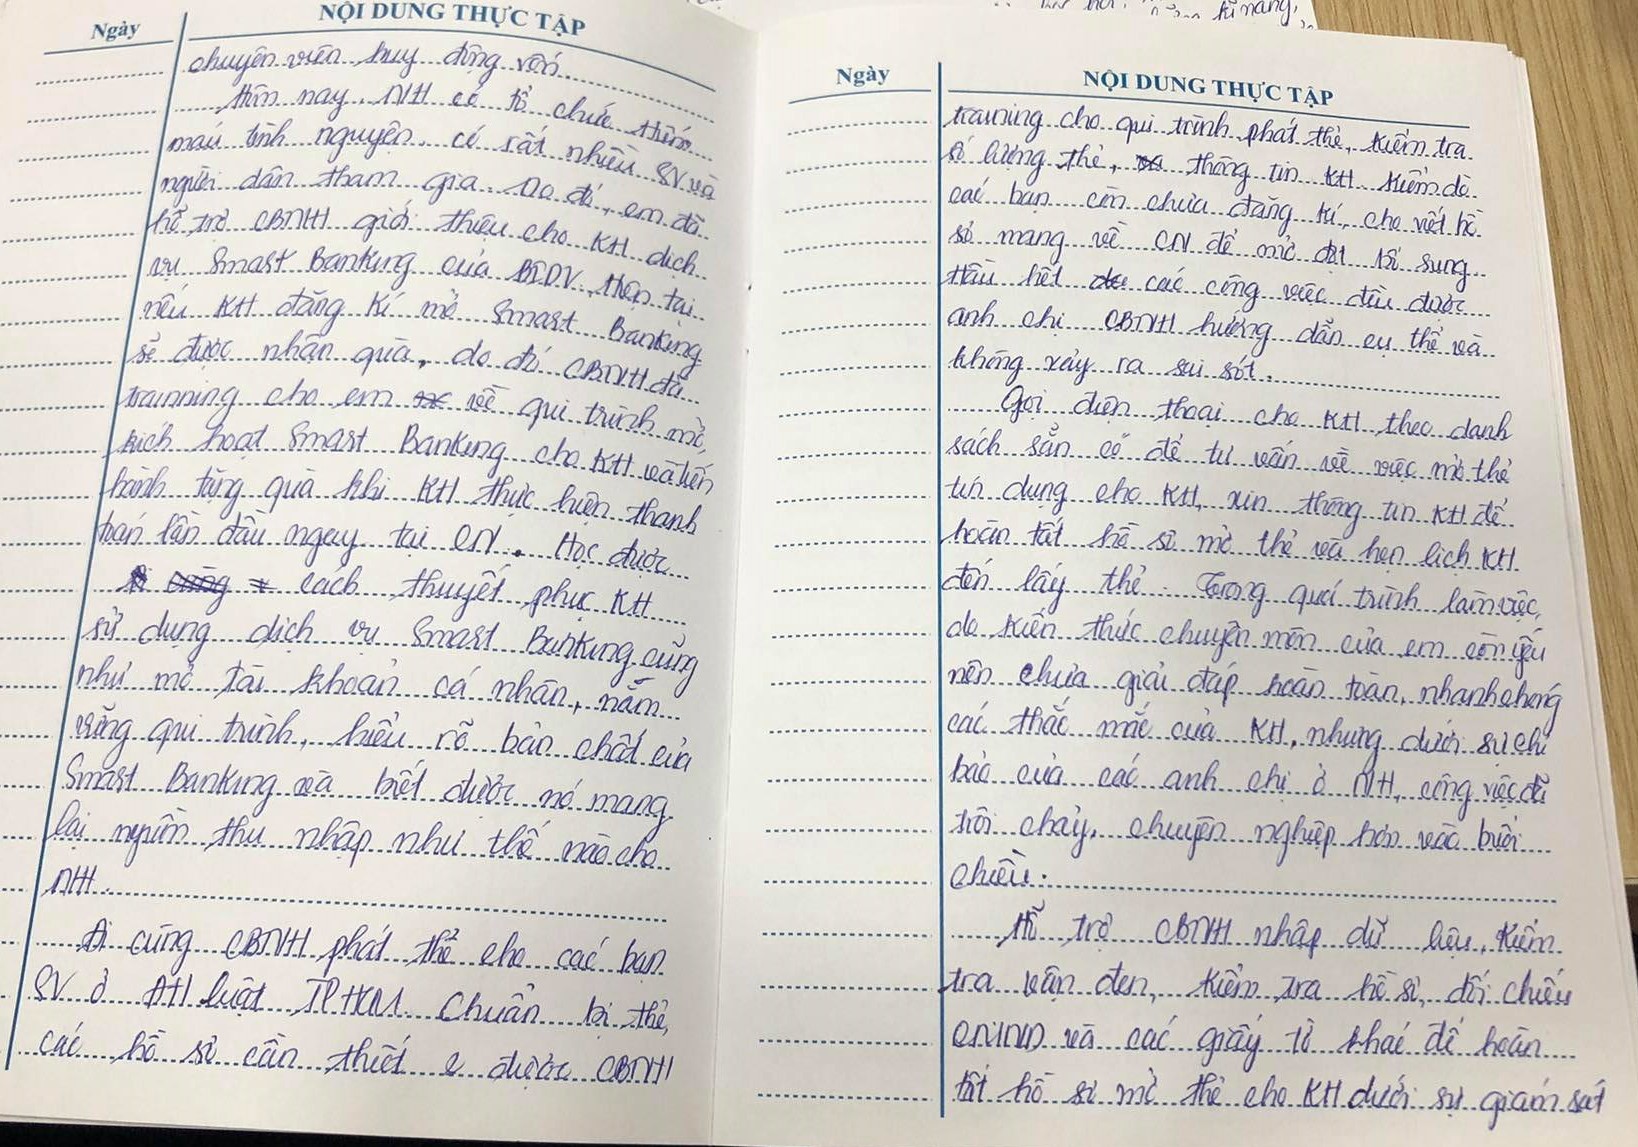 Ngày
NỘI DUNG THỰC TẬP
chuyên viên huy động vốn.
Hôm nay, NH có tổ chức hiến
máu tình nguyện, có rất nhiều SV và
người dân tham gia. Do đó, em đã
hỗ trợ CBNH giới thiệu cho KH dịch
vụ Smart Banking của BIDV. Hiện tại
nếu KH đăng kí mở Smart Banking
sẽ được nhận quà, do đó CBNH đã
trainning cho em về qui trình mở,
kích hoạt Smart Banking cho KH và tiến
hành tặng quà khi KH thực hiện thanh
toán lần đầu ngay tại CN. Học được
cách thuyết phục KH
sử dụng dịch vụ Smart Banking cũng
như mở tài khoản cá nhân, nắm
vững qui trình, hiểu rõ bản chất của
Smart Banking và biết được nó mang
lại nguồn thu nhập như thế nào cho
NH.
Đi cùng CBNH phát thẻ cho các bạn
SV ở ĐH Luật TPHCM. Chuẩn bị thẻ,
các hồ sơ cần thiết được CBNH
Ngày
NỘI DUNG THỰC TẬP
training cho qui trình phát thẻ, kiểm tra
số lượng thẻ, thông tin KH. Kiểm dò
các bạn còn chưa đăng kí, cho viết hồ
sơ mang về CN để mở đợt bổ sung.
Hầu hết các công việc đều được
anh chị CBNH hướng dẫn cụ thể và
không xảy ra sai sót.
Gọi điện thoại cho KH theo danh
sách sẵn có để tư vấn về việc mở thẻ
tín dụng cho KH, xin thông tin KH để
hoàn tất hồ sơ mở thẻ và hẹn lịch KH
đến lấy thẻ. Trong quá trình làm việc,
do kiến thức chuyên môn của em còn yếu
nên chưa giải đáp hoàn toàn, nhanh chóng
các thắc mắc của KH, nhưng dưới sự chỉ
bảo của các anh chị ở NH, công việc đã
trôi chảy, chuyên nghiệp hơn vào buổi
chiều.
Hỗ trợ CBNH nhập dữ liệu, kiểm
tra vận đơn, kiểm tra hồ sơ, đối chiếu
CMND và các giấy tờ khác để hoàn
tất hồ sơ mở thẻ cho KH dưới sự giám sát